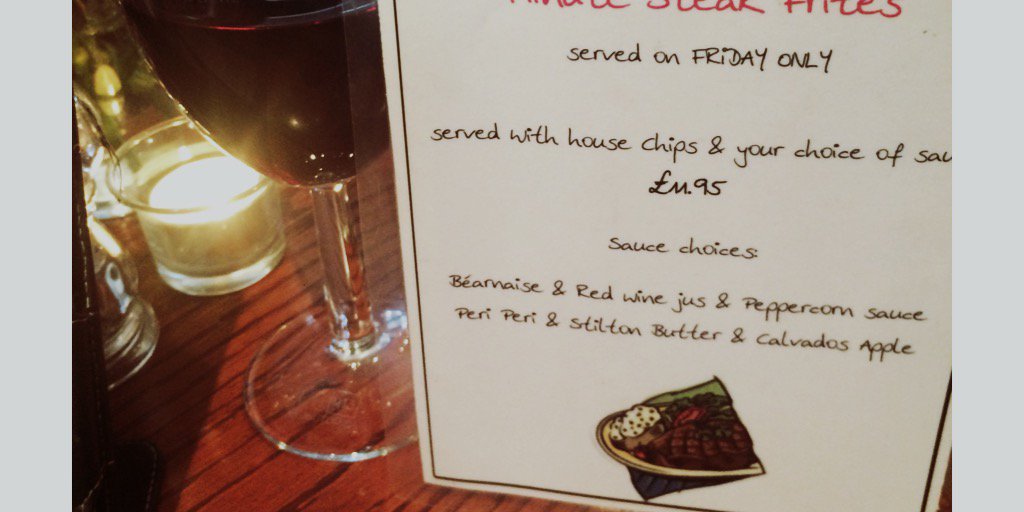 Minute Steak Frites
served on FRIDAY ONLY
served with house chips & your choice of sau
£11.95
Sauce choices:
Béarnaise & Red wine jus & Peppercorn sauce
Peri Peri & Stilton Butter & Calvados Apple